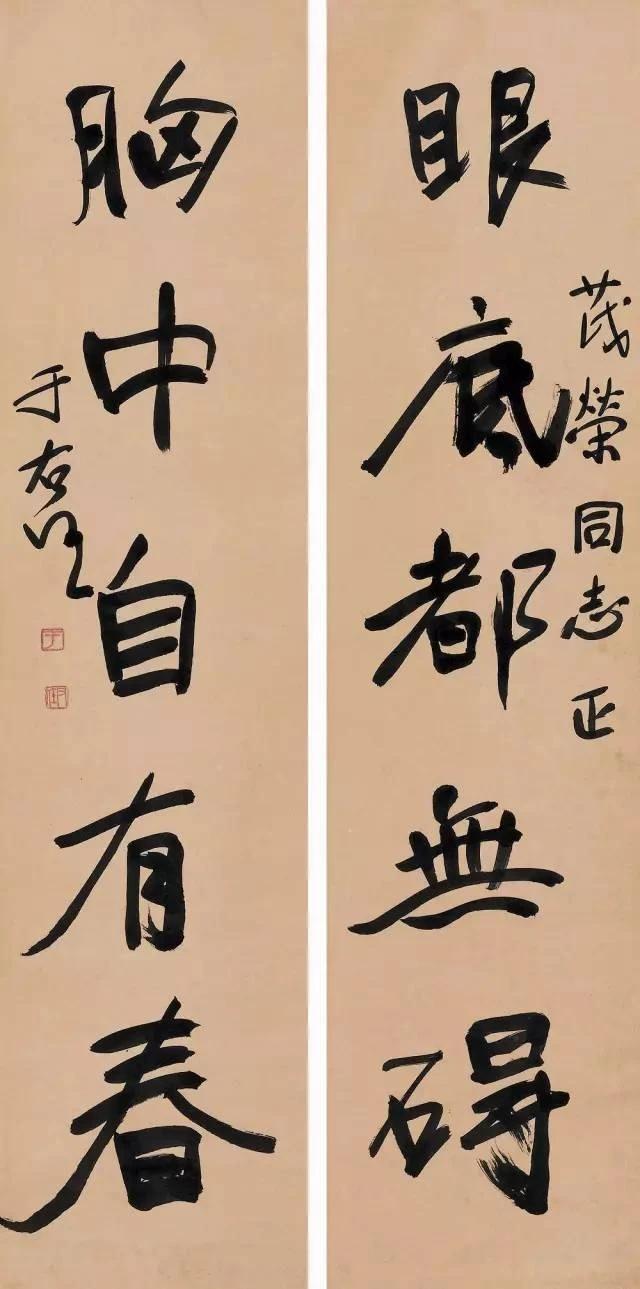 茂榮同志正
眼底都無碍
胸中自有春
于右任